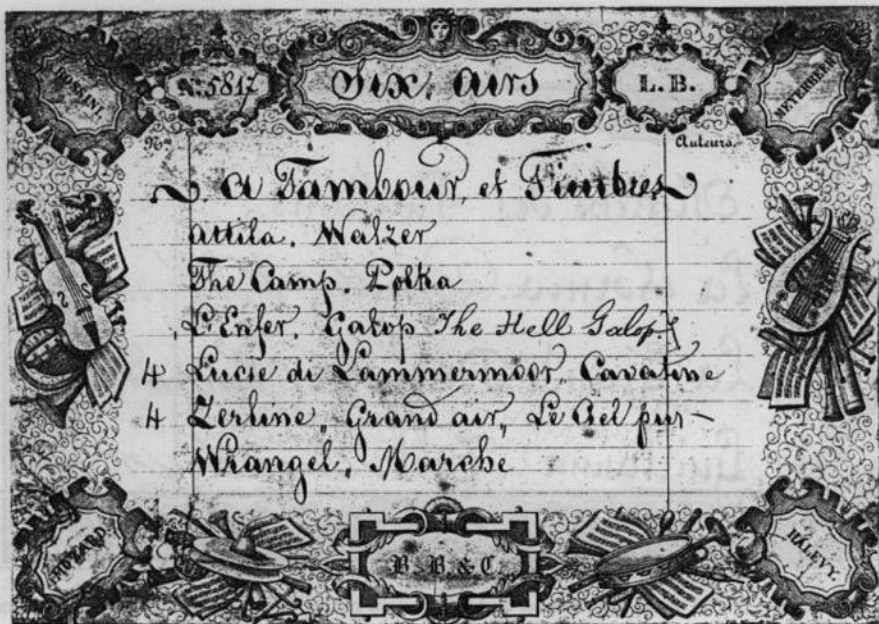 ROSSINI.
No. 5817
Six, airs
L. B.
MEYERBEER
Nos
Auteurs.
A Tambour, et Timbres
Attila. Walzer
The Camp. Polka
L'Enfer. Galop The Hell Galop.
4 Lucie di Lammermoor, Cavatine
4 Zerline, Grand air, Le Ciel pur
Wrangel, Marche
MOZARD.
B. B. & C
HALEVY.